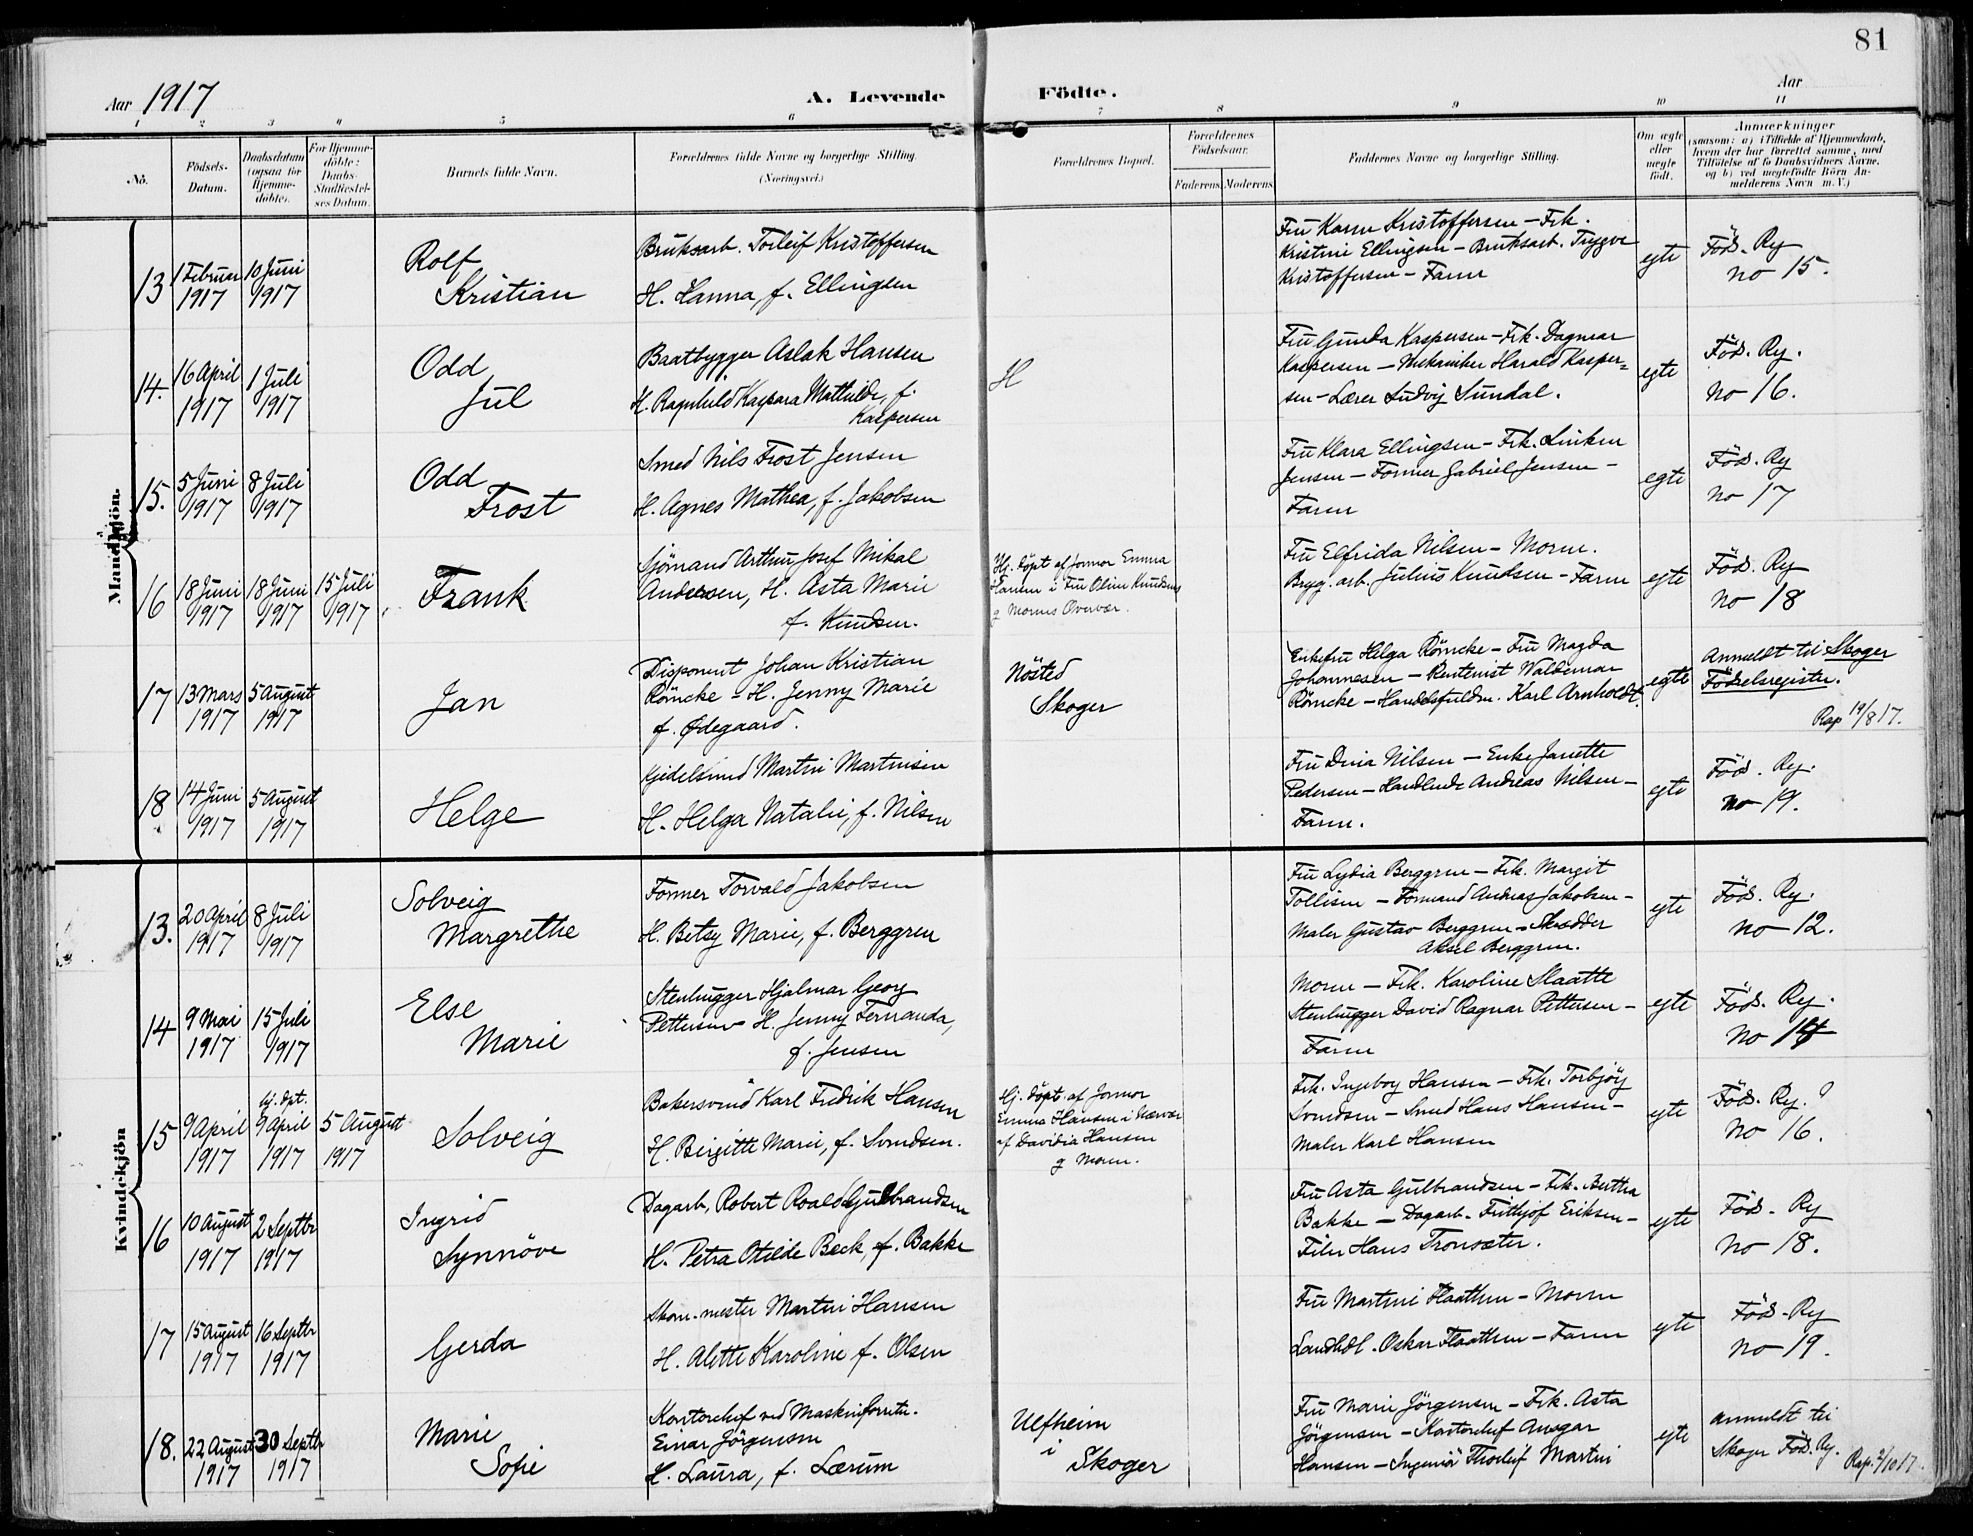 81
Aar 1917
A. Levende Födte.
Aar
1 2 3 4 5 6 7 8 9 10 11
No.
Födsels-
Datum.
Daabsdatum
(ogsaa for
Hjemme-
döbte).
For Hjemme-
döbte:
Daabs-
Stadfæstel-
ses Datum.
Barnets fulde Navn.
Forældrenes fulde Navne og borgerlige Stilling.
(Næringsvei.)
Forældrenes Bopæl.
Forældrenes
Födselsaar.
Faderens. Moderens.
Faddernes Navne og borgerlige Stilling.
Om ægte
eller
uægte
födt.
Anmærkninger
(saasom: a) i Tilfælde af Hjemmedaab,
hvem der har forrettet samme, med
Tilföielse af to Daabsvidners Navne,
og b) ved uægtefödte Börn An-
melderens Navn m. V.)
Mandkjön.
13 1 Februar 1917 10 Juni 1917
Rolf
Kristian
Bruksarb. Torleif Kristoffersen
H. Hanna, f. Ellingsen
Fru Karen Kristoffersen - Frk.
Kristine Ellingsen - Bruksarb. Trygve
Kristoffersen - Faren
egte
Föd. Reg
no 15.
14. 16 April 1917 1 Juli 1917
Odd
Jul
Baatbygger Aslak Hansen
H. Ragnhild Kaspara Mathilde, f.
Kaspersen
H
Fru Gunda Kaspersen - Frk. Dagmar
Kaspersen - Mekaniker Harald Kasper-
sen - Lærer Ludvig Sundal.
egte
Föd. Reg.
no 16.
15. 5 Juni 1917 8 Juli 1917
Odd
Frost
Smed Nils Frost Jensen
H. Agnes Mathea, f. Jakobsen
Fru Klara Ellingsen - Frk. Linken
Jensen - Former Gabriel Jensen -
Faren
egte
Föd. Reg
no 17
16 18 Juni 1917 18 Juni 1917 15 Juli 1917
Frank
Sjömand Arthur Josef Mikal
Andersen, H. Asta Marie
f. Knudsen.
Hj. döpt af Jormor Emma
Hansen i Fru Oline Knudsens
g Morens Overvær.
Fru Elfrida Nilsen - Moren.
Bryg. arb. Julius Knudsen - Faren
egte
Föd. Reg
no 18
17 13 Mars 1917 5 August 1917
Jan
Disponent Johan Kristian
Römcke - H. Jenny Marie
f. Ødegaard.
Nösted
Skoger
Enkefru Helga Römcke - Fru Magda
Johannesen - Rentenist Waldemar
Römcke - Handelsfuldm. Karl Arnholdt.
egte
Anmeldt til Skoger
Födselsregister.
Rap 19/8 17.
18 14 Juni 1917 5 August 1917
Helge
Kjedelsmed Martin Martinsen
H. Helga Natalie, f. Nilsen
Fru Dina Nilsen - Enke Janette
Pedersen - Handlende Andreas Nilsen -
Faren.
egte
Föd. Reg.
no 19.
Kvindekjön
13. 20 April 1917 8 Juli 1917
Solveig
Margrethe
Former Torvald Jakobsen
H. Betsy Marie, f. Berggren
Fru Lydia Berggren - Frk. Margit
Tollisen - Formand Andreas Jakobsen -
Maler Gustav Berggren - Skrædder
Aksel Berggren.
egte
Föd. Reg.
no 12.
14 9 Mai 1917 15 Juli 1917
Else
Marie
Stenhugger Hjalmar Georg
Pettersen - H. Jenny Fernanda,
f. Jensen
Moren - Frk. Karoline Slaatte
Stenhugger David Ragnar Pettersen -
Faren
egte
Föd. Reg.
no 14
15 9 April 1917 hj. dpt. 9 April 1917 5 August 1917
Solveig
Bakersvend Karl Fredrik Hansen
H. Birgitte Marie, f. Svendsen.
Hj. döpt af Jormor
Emma Hansen i Nærvær
af Davidia Hansen
g Moren.
Frk. Ingeborg Hansen - Frk. Torbjörg
Svendsen - Smed Hans Hansen -
Maler Karl Hansen
egte
Föd. Reg. ?
no 16.
16 10 August 1917 2 Septbr 1917
Ingrid
Synnöve
Dagarb. Robert Roald Gulbrandsen
H. Petra Otilde Beck, f. Bakke
Fru Asta Gulbrandsen - Frk. Bertha
Bakke - Dagarb. Frithjof Eriksen -
Filer Hans Tronsæter.
egte
Föd. Reg
no 18.
17 15 August 1917 16 Septbr 1917
Gerda
Skom. mester Martin Hansen
H. Alette Karoline f. Olsen
Fru Martine Flaathen - Moren
Landhdl. Oskar Flaathen - Faren
egte
Föd. Reg
no 19.
18. 22 August 1917 30 Septbr 1917
Marie
Sofie
Kontorchef ved Maskinforretn.
Einar Jörgensen
H. Laura, f. Lærum
Ulfheim
i
Skoger
Fru Marie Jörgensen - Frk. Asta
Jörgensen - Kontorchef Ansgar
Hansen - Ingeniör Thorleif Martini
egte
anmeldt til
Skoger Föd. Reg.
Rap. 2/10 17.